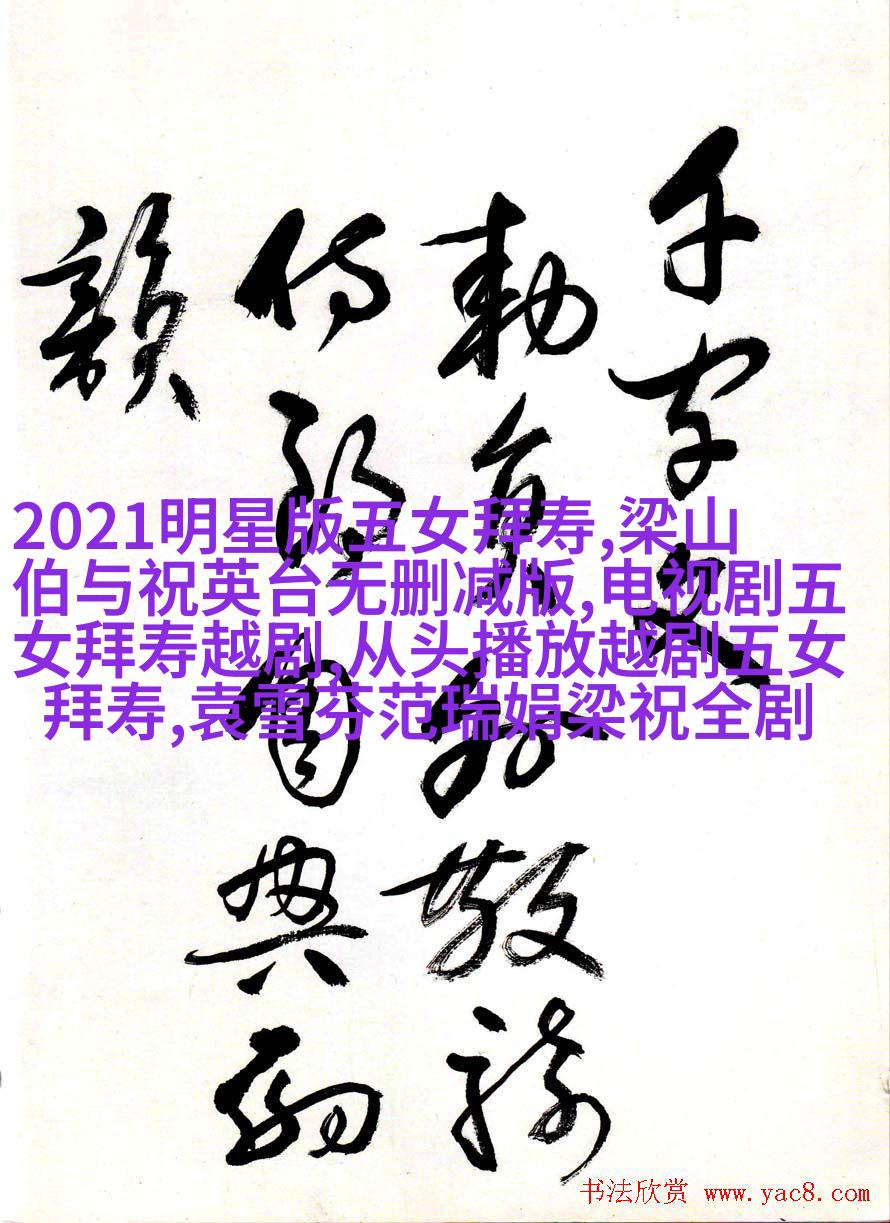 千字文
勅員外散騎
侍郎周興嗣
韻
2021明星版五女拜寿,梁山
伯与祝英台无删减版,电视剧五
女拜寿越剧,从头播放越剧五女
拜寿,袁雪芬范瑞娟梁祝全剧
书法欣赏 www.yac8.com